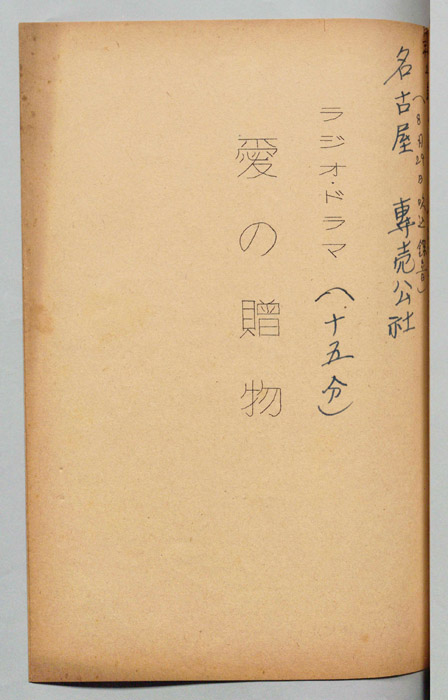 (8月29日吹込録音)
名古屋 專売公社
ラジオ・ドラマ (十五分)
愛の贈物